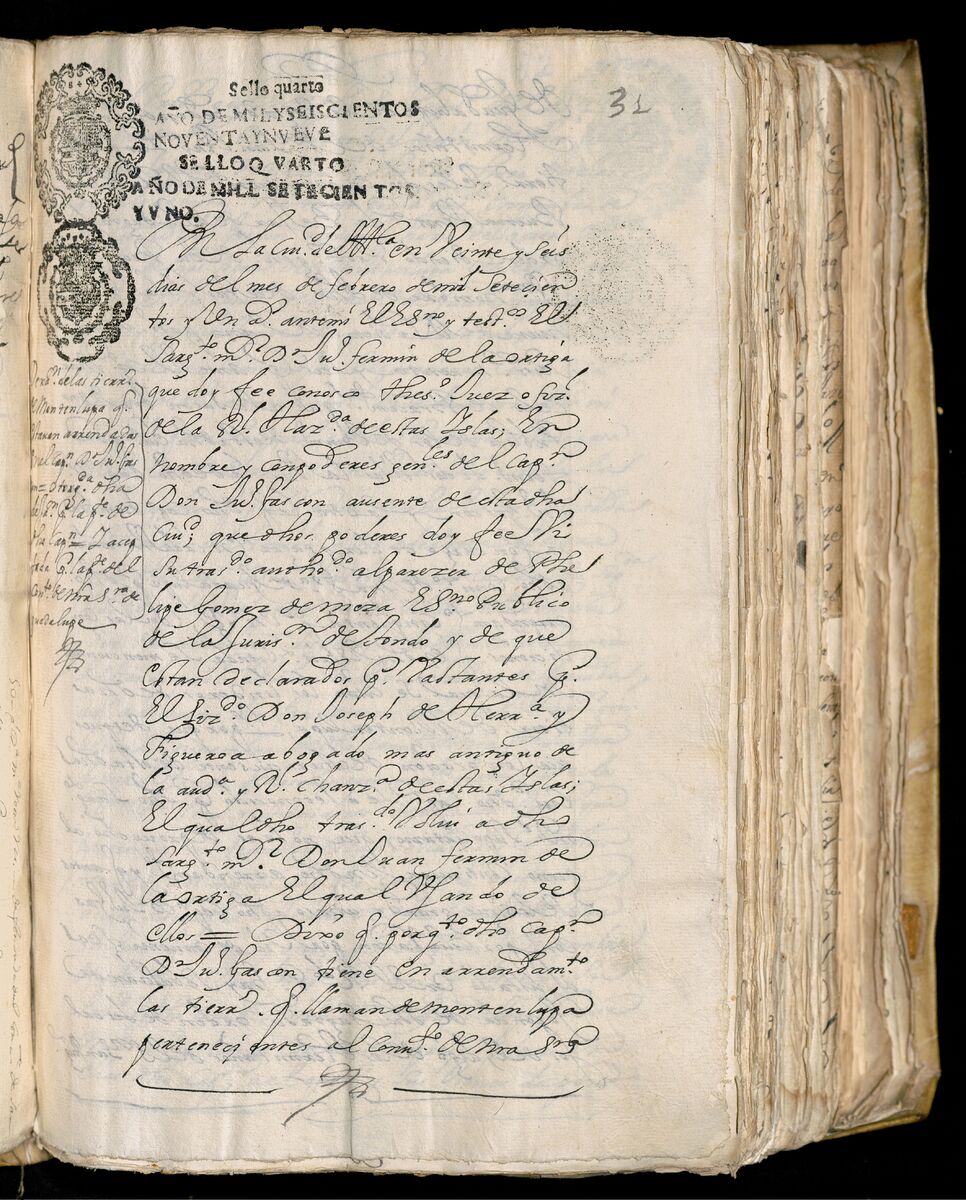 31
Sello quarto
AÑO DE MIL Y SEISCIENTOS
NOVENTA Y NVEVE
SELLO QVARTO
AÑO DE MILL SETECIENTOS
Y VNO.
En la ciu.d de M.la en Veinte y seis
dias del mes de febrero de mil Setecien
tos y Un a.s antemi El Es.no y test.os El
Sarg.to m.r D.n Ju.o fermin de la ortiga
que doy fee conosco thes.o Juez ofiz.l
de la R.l Haz.da de estas Islas; En
nombre y con poderes gen.les del Cap.n
Don Ju.o gascon ausente de esta dha
Ciu.d; que dhos poderes doy fee Vi
su tras.do autho.do al parezer de Phe
lipe Gomez de meza Es.no Publico
de la Juris.on de tondo y de que
estan declarados p.r Vastantes p.r
El Liz.do Don Joseph de Herr.a y
Figueroa abogado mas antiguo de
la aud.a y R.l Chanz.a de estas Islas;
El qual dho tras.do Volvi a dho
Sarg.to m.r Don Juan fermin de
la ortiga El qual Vsando de
ellos = Dixo q.e porq.to dho Cap.n
D.n Ju.o gascon tiene en arrendam.to
las tierr.s q.e llaman de montenlupa
pertenecientes al Conv.to de nra Sra
de las tierr.s
de Montenlupa q.e
estavan arrendadas
al Cap.n D.n Ju.o gas
con = otorg.da dha
p.r la p.te de
dho Cap.n = Y acep
p.r la p.te del
Conv.to de nra S.ra de
guadalupe